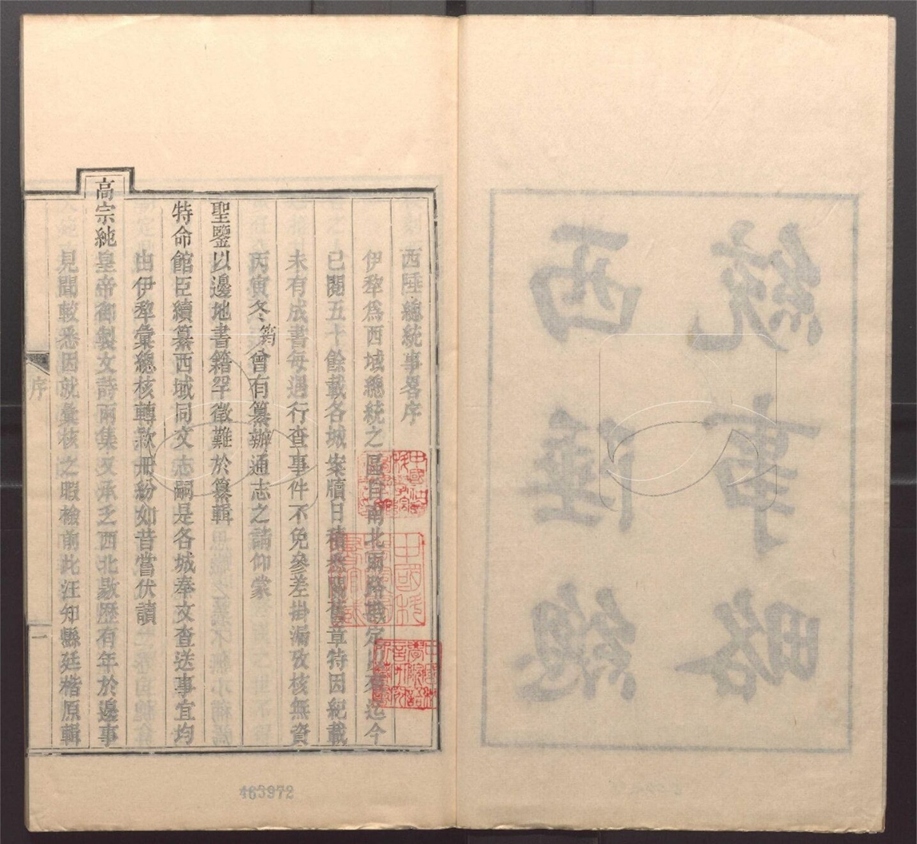 西陲總
統事略
西陲總統事畧序
伊犂爲西域總統之區自南北兩路戡定迄今
已閱五十餘載各城案牘日積舊章特因紀載
未有成書每遇行查事件不免參差掛漏攷核無資
丙寅冬筠曾有纂辦通志之請仰蒙
聖鑒以邊地書籍罕徵難於纂輯
特命館臣續纂西域同文志嗣是各城奉文查送事宜均
由伊犂彙總核轉款册紛如昔嘗伏讀
高宗純皇帝御製文詩兩集又承乏西北敭歷有年於邊事
見聞較悉因就彙核之暇檢前此汪知縣廷楷原輯
序
一
463972